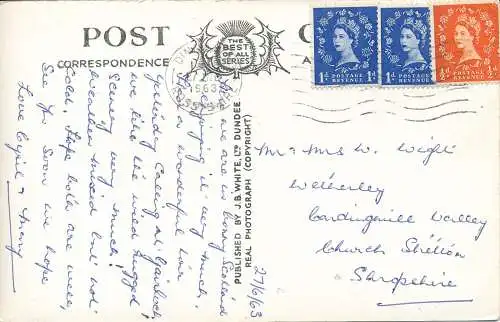 POST
C
CORRESPONDENCE
A
THE
BEST
OF ALL
SERIES
1D POSTAGE REVENUE 1D
1D POSTAGE REVENUE 1D
½D POSTAGE REVENUE ½D
Here we are in bonny Scotland
& enjoying it very much.
Had a wonderful run
yesterday calling at Gairloch,
we like the wild rugged
Scenery very much!
Weather mixed but not
Cold. Hope both are well,
See you soon we hope
Love Cyril &
PUBLISHED BY J.B. WHITE, LTD DUNDEE
REAL PHOTOGRAPH (COPYRIGHT)
27/6/63
Mr & Mrs W. Wight
Wellerley
Cardingmill Valley
Church Stretton
Shropshire